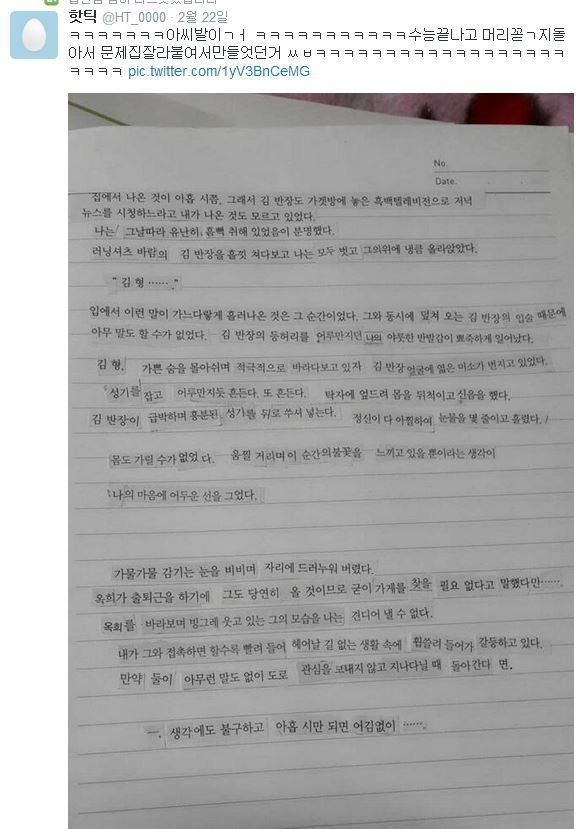 핫틱 @HT_0000 · 2월 22일
ㅋㅋㅋㅋㅋㅋㅋㅋㅋ아씨발이ㄱㅓ ㅋㅋㅋㅋㅋㅋㅋㅋㅋㅋㅋ수능끝나고 머리꼳ㄱ지돌
아서 문제집잘라붙여서만들엇던거 ㅆㅂㅋㅋㅋㅋㅋㅋㅋㅋㅋㅋㅋㅋㅋㅋㅋㅋㅋㅋ
ㅋㅋㅋㅋ pic.twitter.com/1yV3BnCeMG
No.
Date.
집에서 나온 것이 아홉 시쯤, 그래서 김 반장도 가겟방에 놓은 흑백텔레비전으로 저녁
뉴스를 시청하느라고 내가 나온 것도 모르고 있었다.
나는 그날따라 유난히, 흠뻑 취해 있었음이 분명했다.
러닝셔츠 바람의 김 반장을 흘낏 쳐다보고 나는 모두 벗고 그의위에 냉큼 올라앉았다.
“ 김 형 ⋯⋯ .”
입에서 이런 말이 가느다랗게 흘러나온 것은 그 순간이었다. 그와 동시에 덮쳐 오는 김 반장의 입술 때문에
아무 말도 할 수가 없었다. 김 반장의 등허리를 어루만지던 나의 야릇한 반발감이 뾰죽하게 일어났다.
김 형, 가쁜 숨을 몰아쉬며 적극적으로 바라다보고 있자 김 반장 얼굴에 엷은 미소가 번지고 있었다.
성기를 잡고 어루만지듯 흔든다. 또 흔든다. 탁자에 엎드려 몸을 뒤척이고 신음을 했다.
김 반장이 급박하며 흥분된 성기를 뒤로 쑤셔 넣는다. 정신이 다 아찔하여 눈물을 몇 줄이고 흘렸다. /
몸도 가릴 수가 없었 다. 움찔 거리며 이 순간의불꽃을 느끼고 있을 뿐이라는 생각이
나의 마음에 어두운 선을 그었다.
가물가물 감기는 눈을 비비며 자리에 드러누워 버렸다.
옥희가 출퇴근을 하기에 그도 당연히 올 것이므로 굳이 가게를 찾을 필요 없다고 말했다만⋯⋯.
옥희를 바라보며 빙그레 웃고 있는 그의 모습을 나는 견디어 낼 수 없다.
내가 그와 접촉하면 할수록 빨려 들어 헤어날 길 없는 생활 속에 휩쓸려 들어가 갈등하고 있다.
만약 둘이 아무런 말도 없이 도로 관심을 보내지 않고 지나다닐 때 돌아간다 면.
ㅡ. 생각에도 불구하고 아홉 시만 되면 어김없이 ⋯⋯.